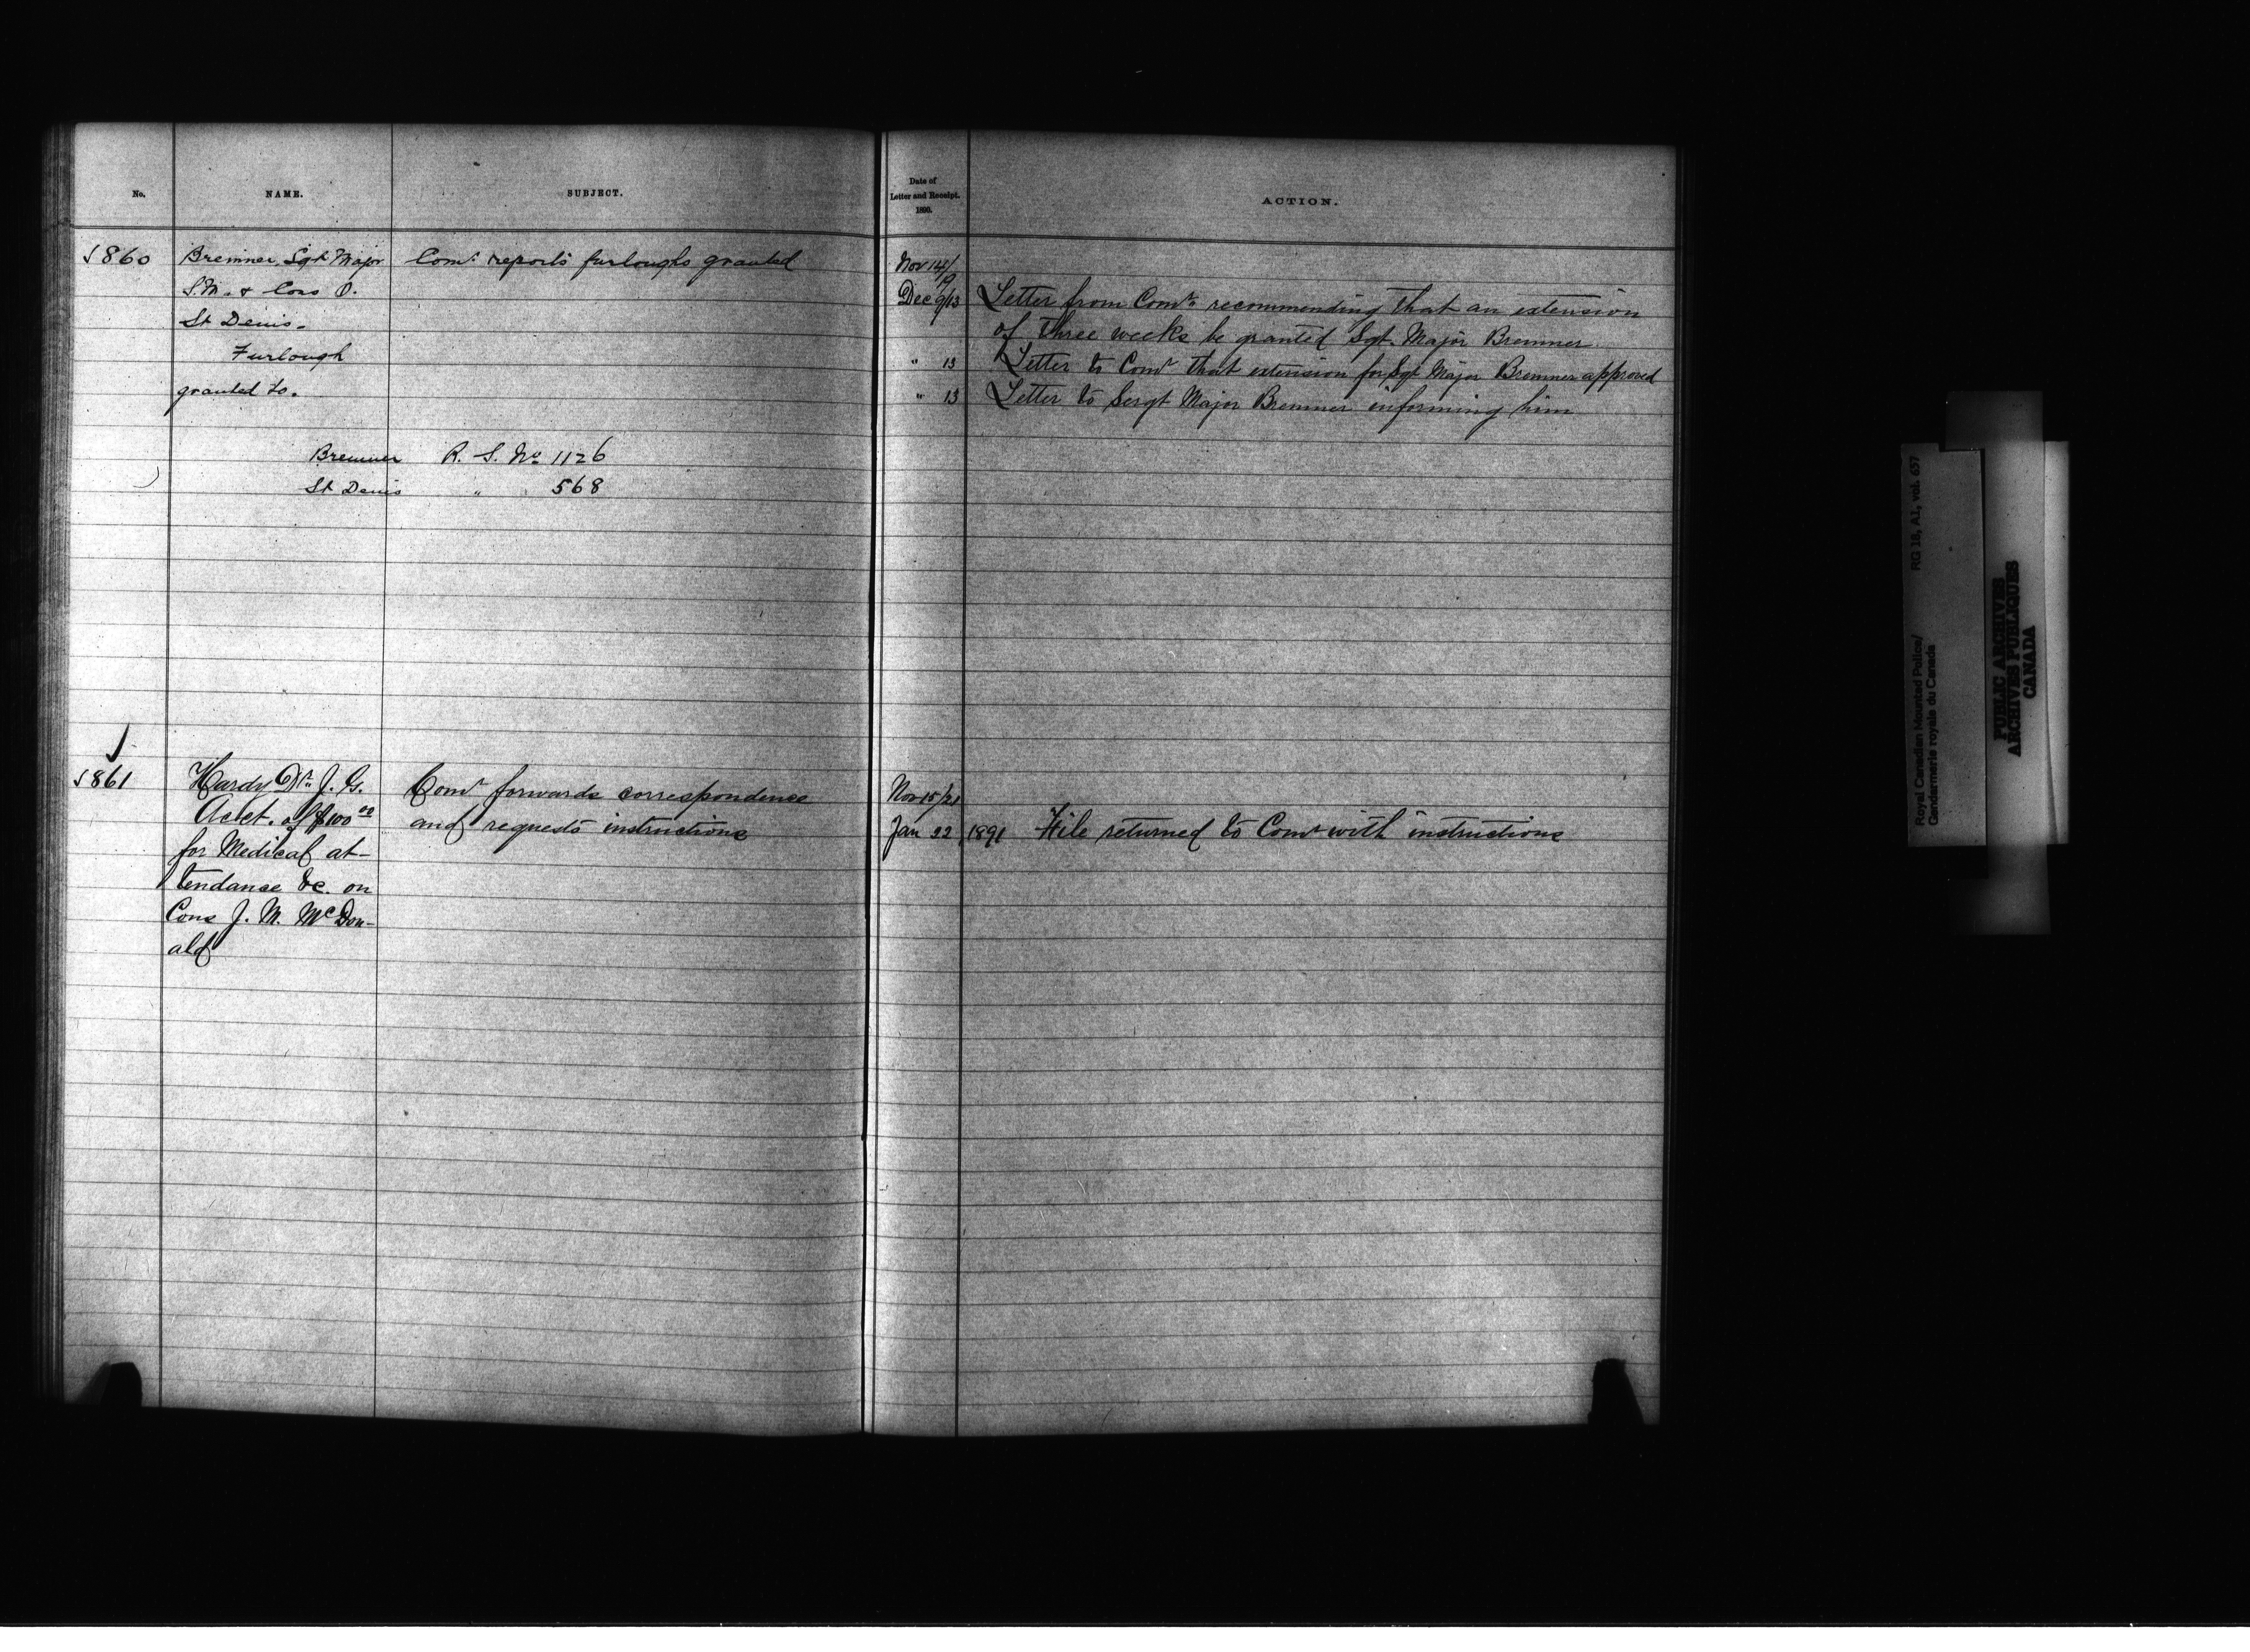 No.
NAME.
SUBJECT.
Date of
Letter and Receipt.
1890.
ACTION.
860
Bremner, Sgt Major
S.M. & Cons O.
St Denis.
Furlough
granted to.
Comr. reports furloughs granted
Bremner R. S. No 1126
St Denis " 568
Nov 14/19
Dec 9/13 Letter from Comr. recommending that an extension
of three weeks be granted Sgt. Major Bremner.
" 13 Letter to Comr that extension for Sgt Major Bremner approved
" 13 Letter to Sergt Major Bremner informing him
861
Hardy Dr. J. G.
Acct. of $100 00
for Medical at-
tendance &c. on
Cons J. M. McDon-
ald
Comr forwards correspondence
and requests instructions
Nov 15/21
Jan 22 1891 File returned to Comr with instructions
Royal Canadian Mounted Police/
Gendarmerie royale du Canada
RG 18, A1, vol. 657
PUBLIC ARCHIVES
ARCHIVES PUBLIQUES
CANADA